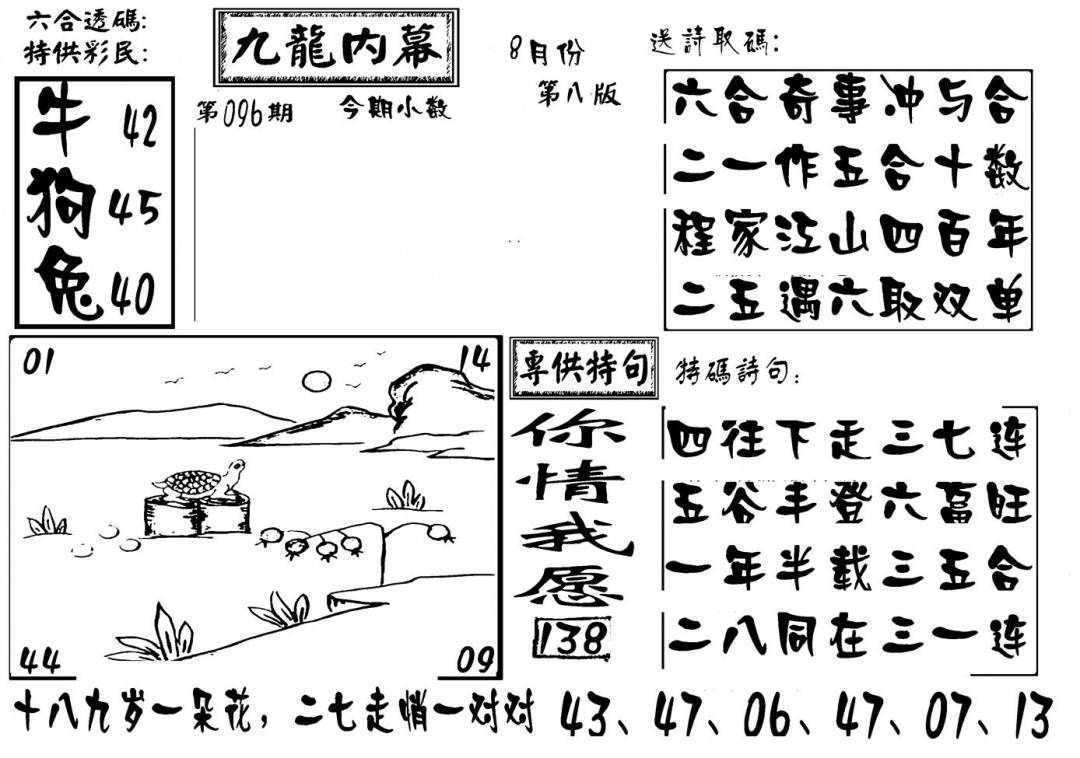 六合透碼:
特供彩民:
九龍内幕
8月份
第八版
第096期
今期小数
牛 42
狗 45
兔 40
送詩取碼:
六合奇事冲与合
二一作五合十数
程家江山四百年
二五遇六取双单
01
14
44
09
專供特句
你情我愿
138
特碼詩句:
四往下走三七连
五谷丰登六畜旺
一年半载三五合
二八同在三一连
十八九岁一朵花,二七走悄一对对 43、47、06、47、07、13